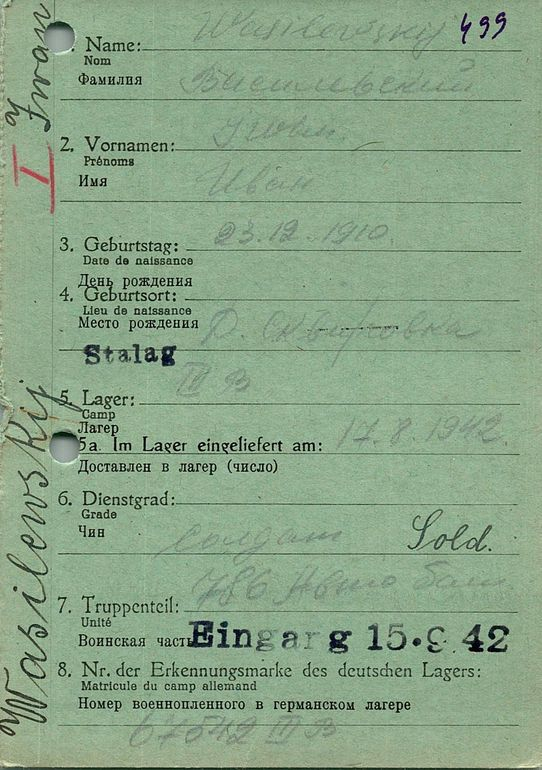 499
1. Name: Wasilewskij
Nom
Фамилия Василевский
2. Vornamen: Iwan.
Prénoms
Имя Иван
3. Geburtstag: 23.12.1910.
Date de naissance
День рождения
4. Geburtsort:
Lieu de naissance
Место рождения Д.
Stalag
III B
5. Lager:
Camp
Лагер
5a. Im Lager eingeliefert am: 17.8.1942.
Доставлен в лагер (число)
6. Dienstgrad:
Grade
Чин солдат Sold.
786 Авто бат
7. Truppenteil:
Unité
Воинская часть Eingang 15.9.42
8. Nr. der Erkennungsmarke des deutschen Lagers:
Matricule du camp allemand
Номер военнопленного в германском лагере
67542 III B
Wasilewskij I Iwan